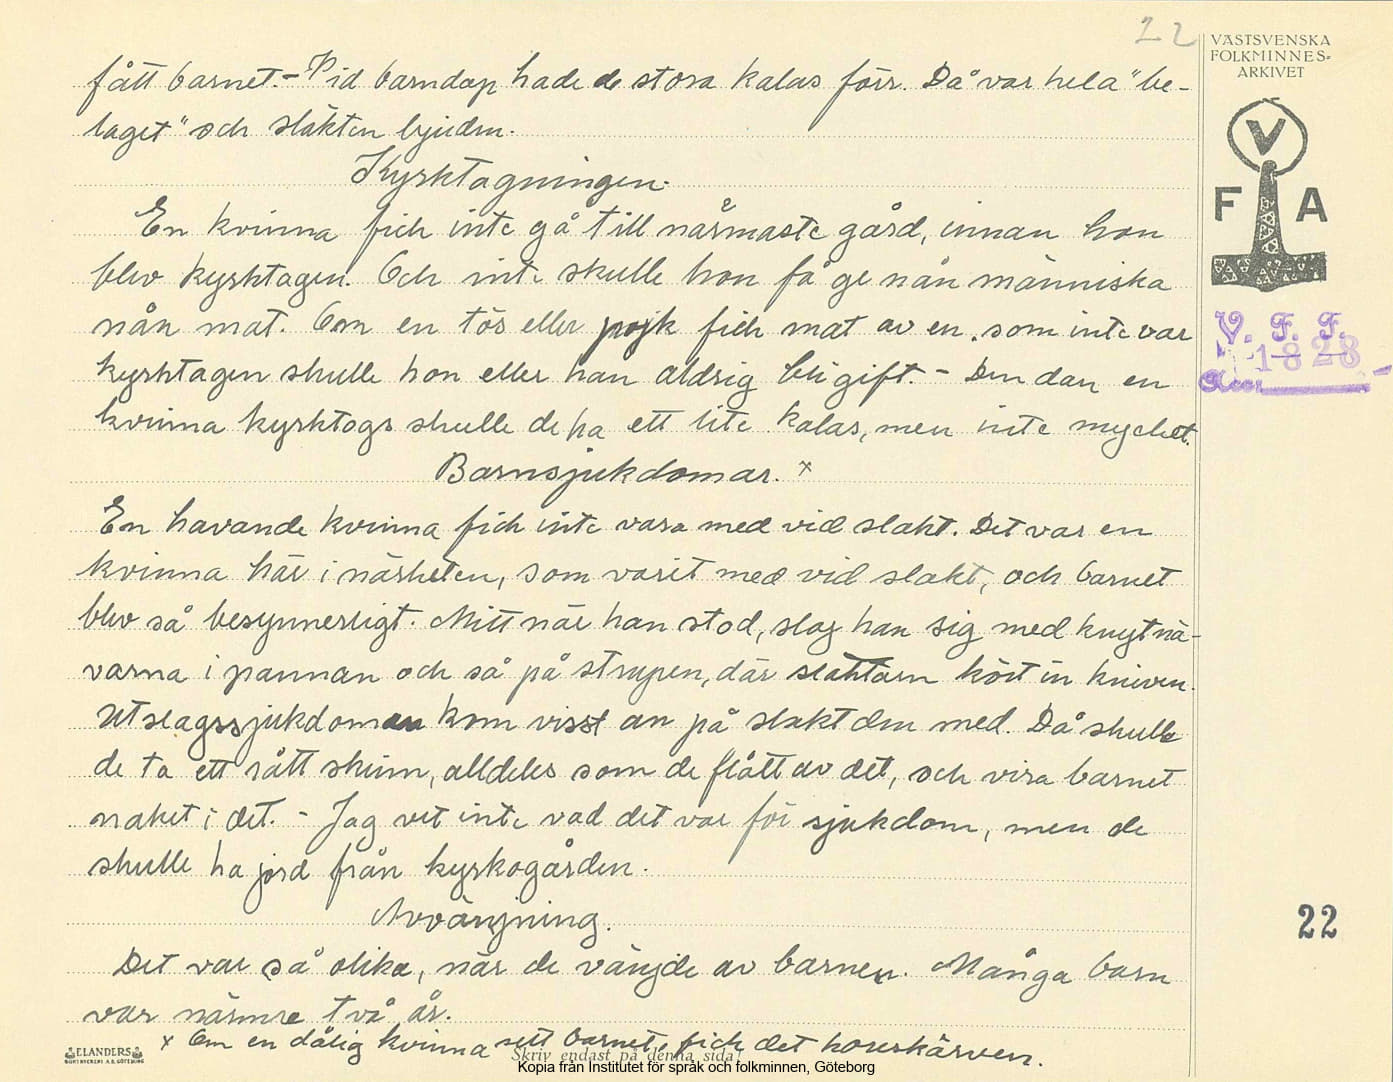 22
VÄSTSVENSKA
FOLKMINNES-
ARKIVET
V
F A
V. F. F.
1828
Accr
fått barnet. - Vid barndop hade de stora kalas förr. Då var hela "be-
laget" och släkten bjuden.
Kyrktagningen.
En kvinna fick inte gå till närmaste gård, innan hon
blev kyrktagen. Och inte skulle hon få ge nån människa
nån mat. Om en tös eller pojk fick mat av en, som inte var
kyrktagen skulle hon eller han aldrig bli gift. - Den dan en
kvinna kyrktogs skulle de ha ett lite kalas, men inte mycket.
Barnsjukdomar. x
En havande kvinna fick inte vara med vid slakt. Det var en
kvinna här i närheten, som varit med vid slakt, och barnet
blev så besynnerligt. Mitt när han stod, slog han sig med knytnä-
varna i pannan och så på strupen, där slaktarn kört in kniven.
Utslagssjukdomen kom visst an på slakten med. Då skulle
de ta ett rått skinn, alldeles som de flått av det, och vira barnet
naket i det. - Jag vet inte vad det var för sjukdom, men de
skulle ha jord från kyrkogården.
Avvänjning.
Det var så olika, när de vänjde av barnen. Många barn
var närmre två år.
x Om en dålig kvinna sett barnet, fick det horeskärven.
22
ELANDERS
BOKTRYCKERI A.B. GÖTEBORG
Skriv endast på denna sida!
Kopia från Institutet för språk och folkminnen, Göteborg